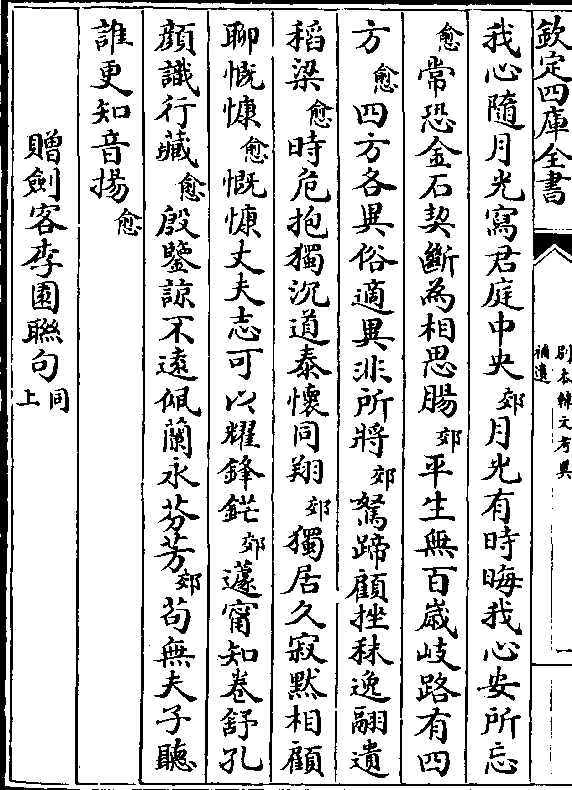 欽定四庫全書
別本韓文考異
補遺
一
我心隨月光寫君庭中央郊月光有時晦我心安所忘
愈常恐金石契斷為相思腸郊平生無百歲岐路有四
方愈四方各異俗適異非所將郊駑蹄顧挫秣逸翮遺
稻粱愈時危抱獨沉道泰懷同翔郊獨居久寂默相顧
聊慨慷愈慨慷丈夫志可以耀鋒鋩郊蘧甯知卷舒孔
顔識行藏愈殷鑒諒不遠佩蘭永芬芳郊苟無夫子聽
誰更知音揚愈
贈劍客李園聯句同上